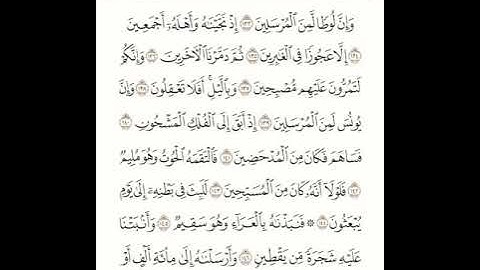 وَإِنَّ لُوطًا لَّمِنَ الْمُرْسَلِينَ ۝١٣٣ إِذْ نَجَّيْنَاهُ وَأَهْلَهُ أَجْمَعِينَ
۝١٣٤ إِلَّا عَجُوزًا فِي الْغَابِرِينَ ۝١٣٥ ثُمَّ دَمَّرْنَا الْآخَرِينَ ۝١٣٦ وَإِنَّكُمْ
لَتَمُرُّونَ عَلَيْهِم مُّصْبِحِينَ ۝١٣٧ وَبِاللَّيْلِ أَفَلَا تَعْقِلُونَ ۝١٣٨ وَإِنَّ
يُونُسَ لَمِنَ الْمُرْسَلِينَ ۝١٣٩ إِذْ أَبَقَ إِلَى الْفُلْكِ الْمَشْحُونِ ۝١٤٠
فَسَاهَمَ فَكَانَ مِنَ الْمُدْحَضِينَ ۝١٤١ فَالْتَقَمَهُ الْحُوتُ وَهُوَ مُلِيمٌ
۝١٤٢ فَلَوْلَا أَنَّهُ كَانَ مِنَ الْمُسَبِّحِينَ ۝١٤٣ لَلَبِثَ فِي بَطْنِهِ إِلَى يَوْمِ
يُبْعَثُونَ ۝١٤٤ ۞ فَنَبَذْنَاهُ بِالْعَرَاءِ وَهُوَ سَقِيمٌ ۝١٤٥ وَأَنبَتْنَا
عَلَيْهِ شَجَرَةً مِّن يَقْطِينٍ ۝١٤٦ وَأَرْسَلْنَاهُ إِلَى مِائَةِ أَلْفٍ أَوْ